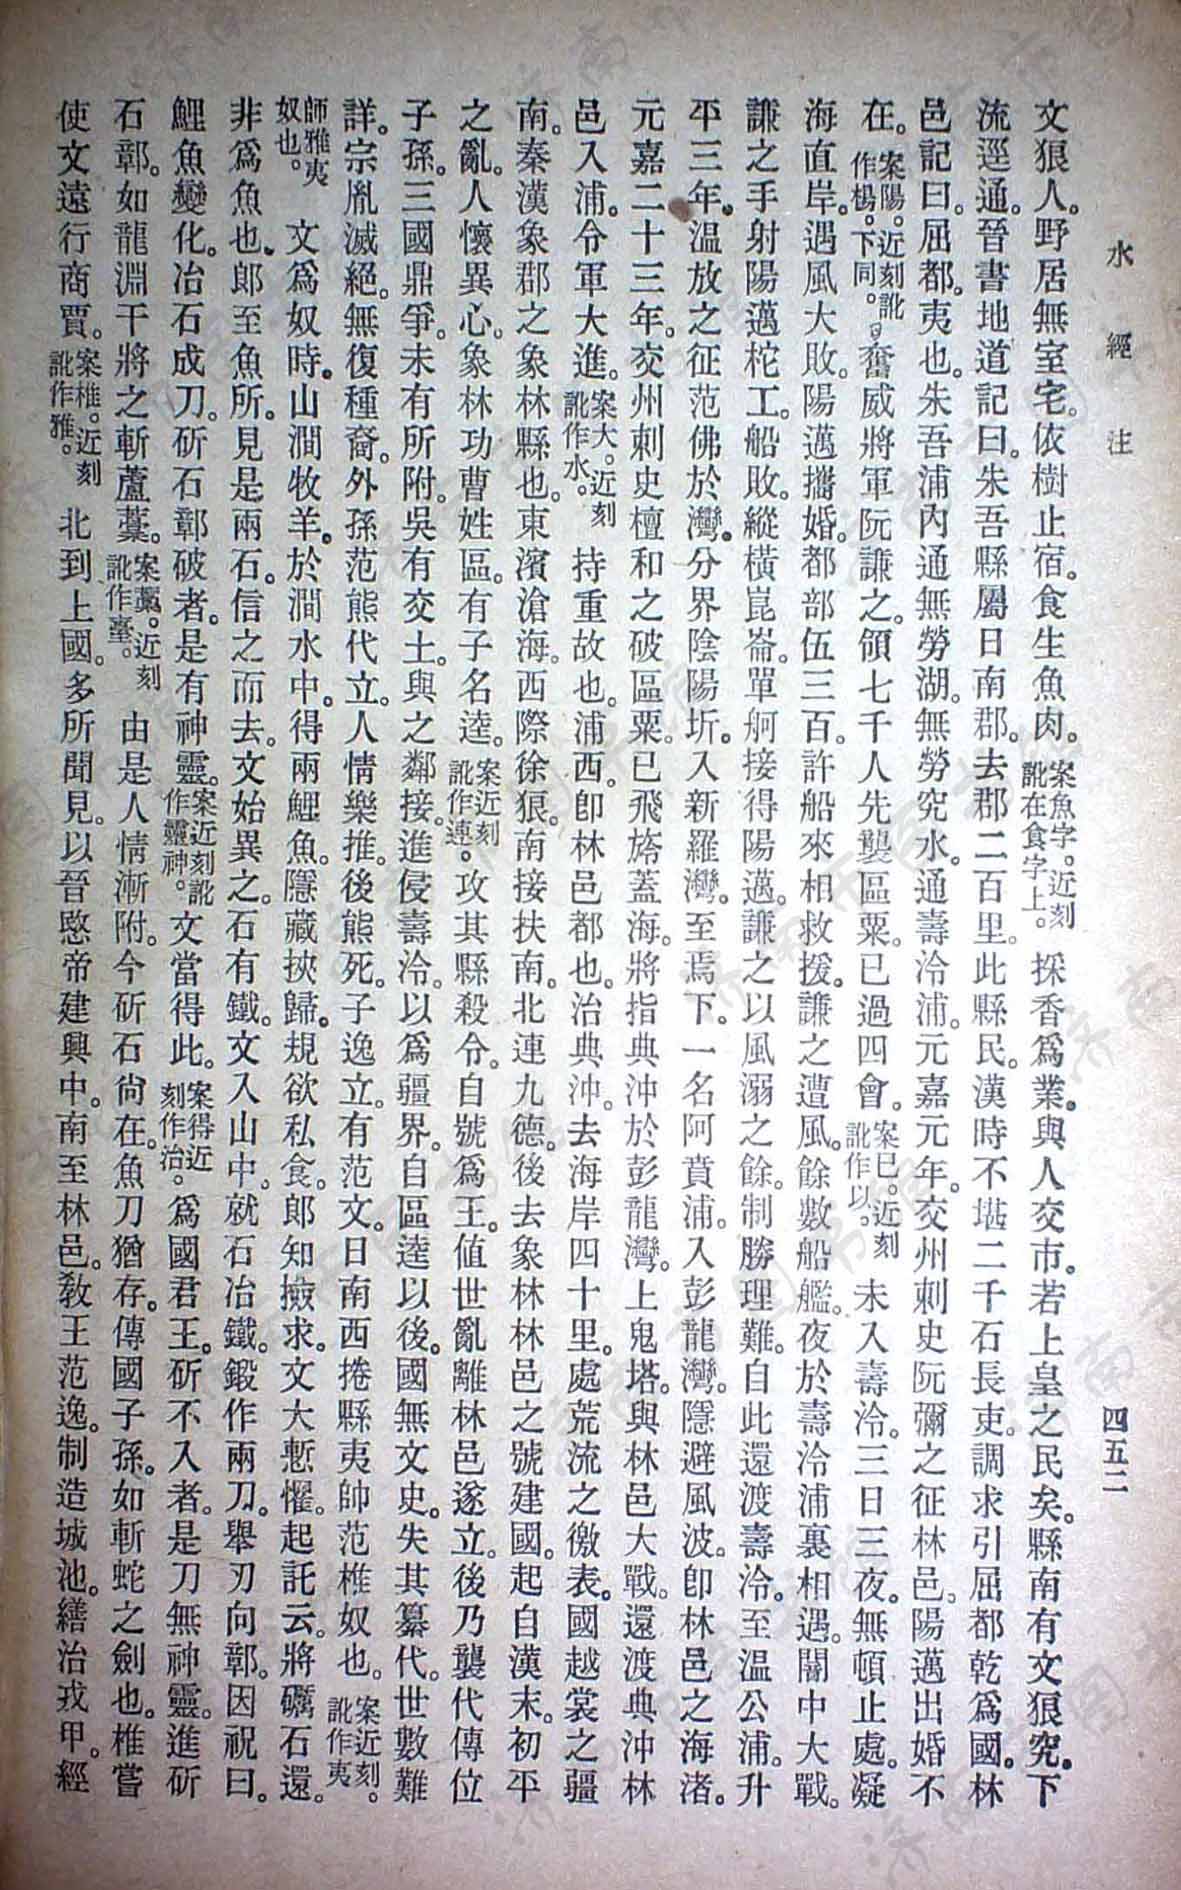 水經注
四五二
文狼人。野居無室宅。依樹止宿。食生魚肉。案魚字。近刻訛在食字上。採香爲業。與人交市。若上皇之民矣。縣南有文狼究。下
流逕通。晉書地道記曰。朱吾縣屬日南郡。去郡二百里。此縣民。漢時不堪二千石長吏。調求引屈都乾爲國。林
邑記曰。屈都。夷也。朱吾浦內通無勞湖。無勞究水。通壽泠浦。元嘉元年。交州刺史阮彌之征林邑。陽邁出婚不
在。案陽。近刻訛作楊。下同。奮威將軍阮謙之。領七千人先襲區粟。已過四會。案已。近刻訛作以。未入壽泠。三日三夜。無頓止處。凝
海直岸。遇風大敗。陽邁攜婚。都部伍三百。許船來相救援。謙之遭風。餘數船艦。夜於壽泠浦裏相遇。闇中大戰。
謙之手射陽邁柁工。船敗。縱橫崑崙。單舸接得陽邁。謙之以風溺之餘。制勝理難。自此還渡壽泠。至溫公浦。升
平三年。溫放之征范佛於灣。分界陰陽圻。入新羅灣。至焉下。一名阿賁浦。入彭龍灣。隱避風波。卽林邑之海渚。
元嘉二十三年。交州刺史檀和之破區粟。已飛旍蓋海。將指典沖於彭龍灣。上鬼塔。與林邑大戰。還渡典沖林
邑入浦。令軍大進。案大。近刻訛作水。持重故也。浦西。卽林邑都也。治典沖。去海岸四十里。處荒流之徼表。國越裳之疆
南。秦漢象郡之象林縣也。東濱滄海。西際徐狼。南接扶南。北連九德。後去象林林邑之號建國。起自漢末。初平
之亂。人懷異心。象林功曹姓區。有子名逵。案近刻訛作連。攻其縣殺令。自號爲王。值世亂離林邑遂立。後乃襲代傳位
子孫。三國鼎爭。未有所附。吳有交土。與之鄰接。進侵壽泠。以爲疆界。自區逵以後。國無文史。失其纂代。世數難
詳。宗胤滅絕。無復種裔。外孫范熊代立。人情樂推。後熊死。子逸立。有范文。日南西捲縣夷帥范椎奴也。案近刻。訛作夷
師雅夷奴也。文爲奴時。山澗牧羊。於澗水中。得兩鯉魚。隱藏挾歸。規欲私食。郎知撿求。文大慙懼。起託云。將礪石還。
非爲魚也。郎至魚所。見是兩石。信之而去。文始異之。石有鐵。文入山中。就石冶鐵。鍛作兩刀。舉刃向鄣。因祝曰。
鯉魚變化。冶石成刀。斫石鄣破者。是有神靈。案近刻訛作靈神。文當得此。案得近刻作治。爲國君王。斫不入者。是刀無神靈。進斫
石鄣。如龍淵干將之斬蘆藁。案藁。近刻訛作臺。由是人情漸附。今斫石尙在。魚刀猶存。傳國子孫。如斬蛇之劍也。椎嘗
使文遠行商賈。案椎。近刻訛作雅。北到上國。多所聞見。以晉愍帝建興中。南至林邑。敎王范逸。制造城池。繕治戎甲。經